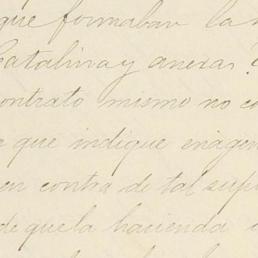 que formaban la
Catalina y anexas?
contrato mismo no co
que indique enagen
en contra de tal supo
de que la hacienda